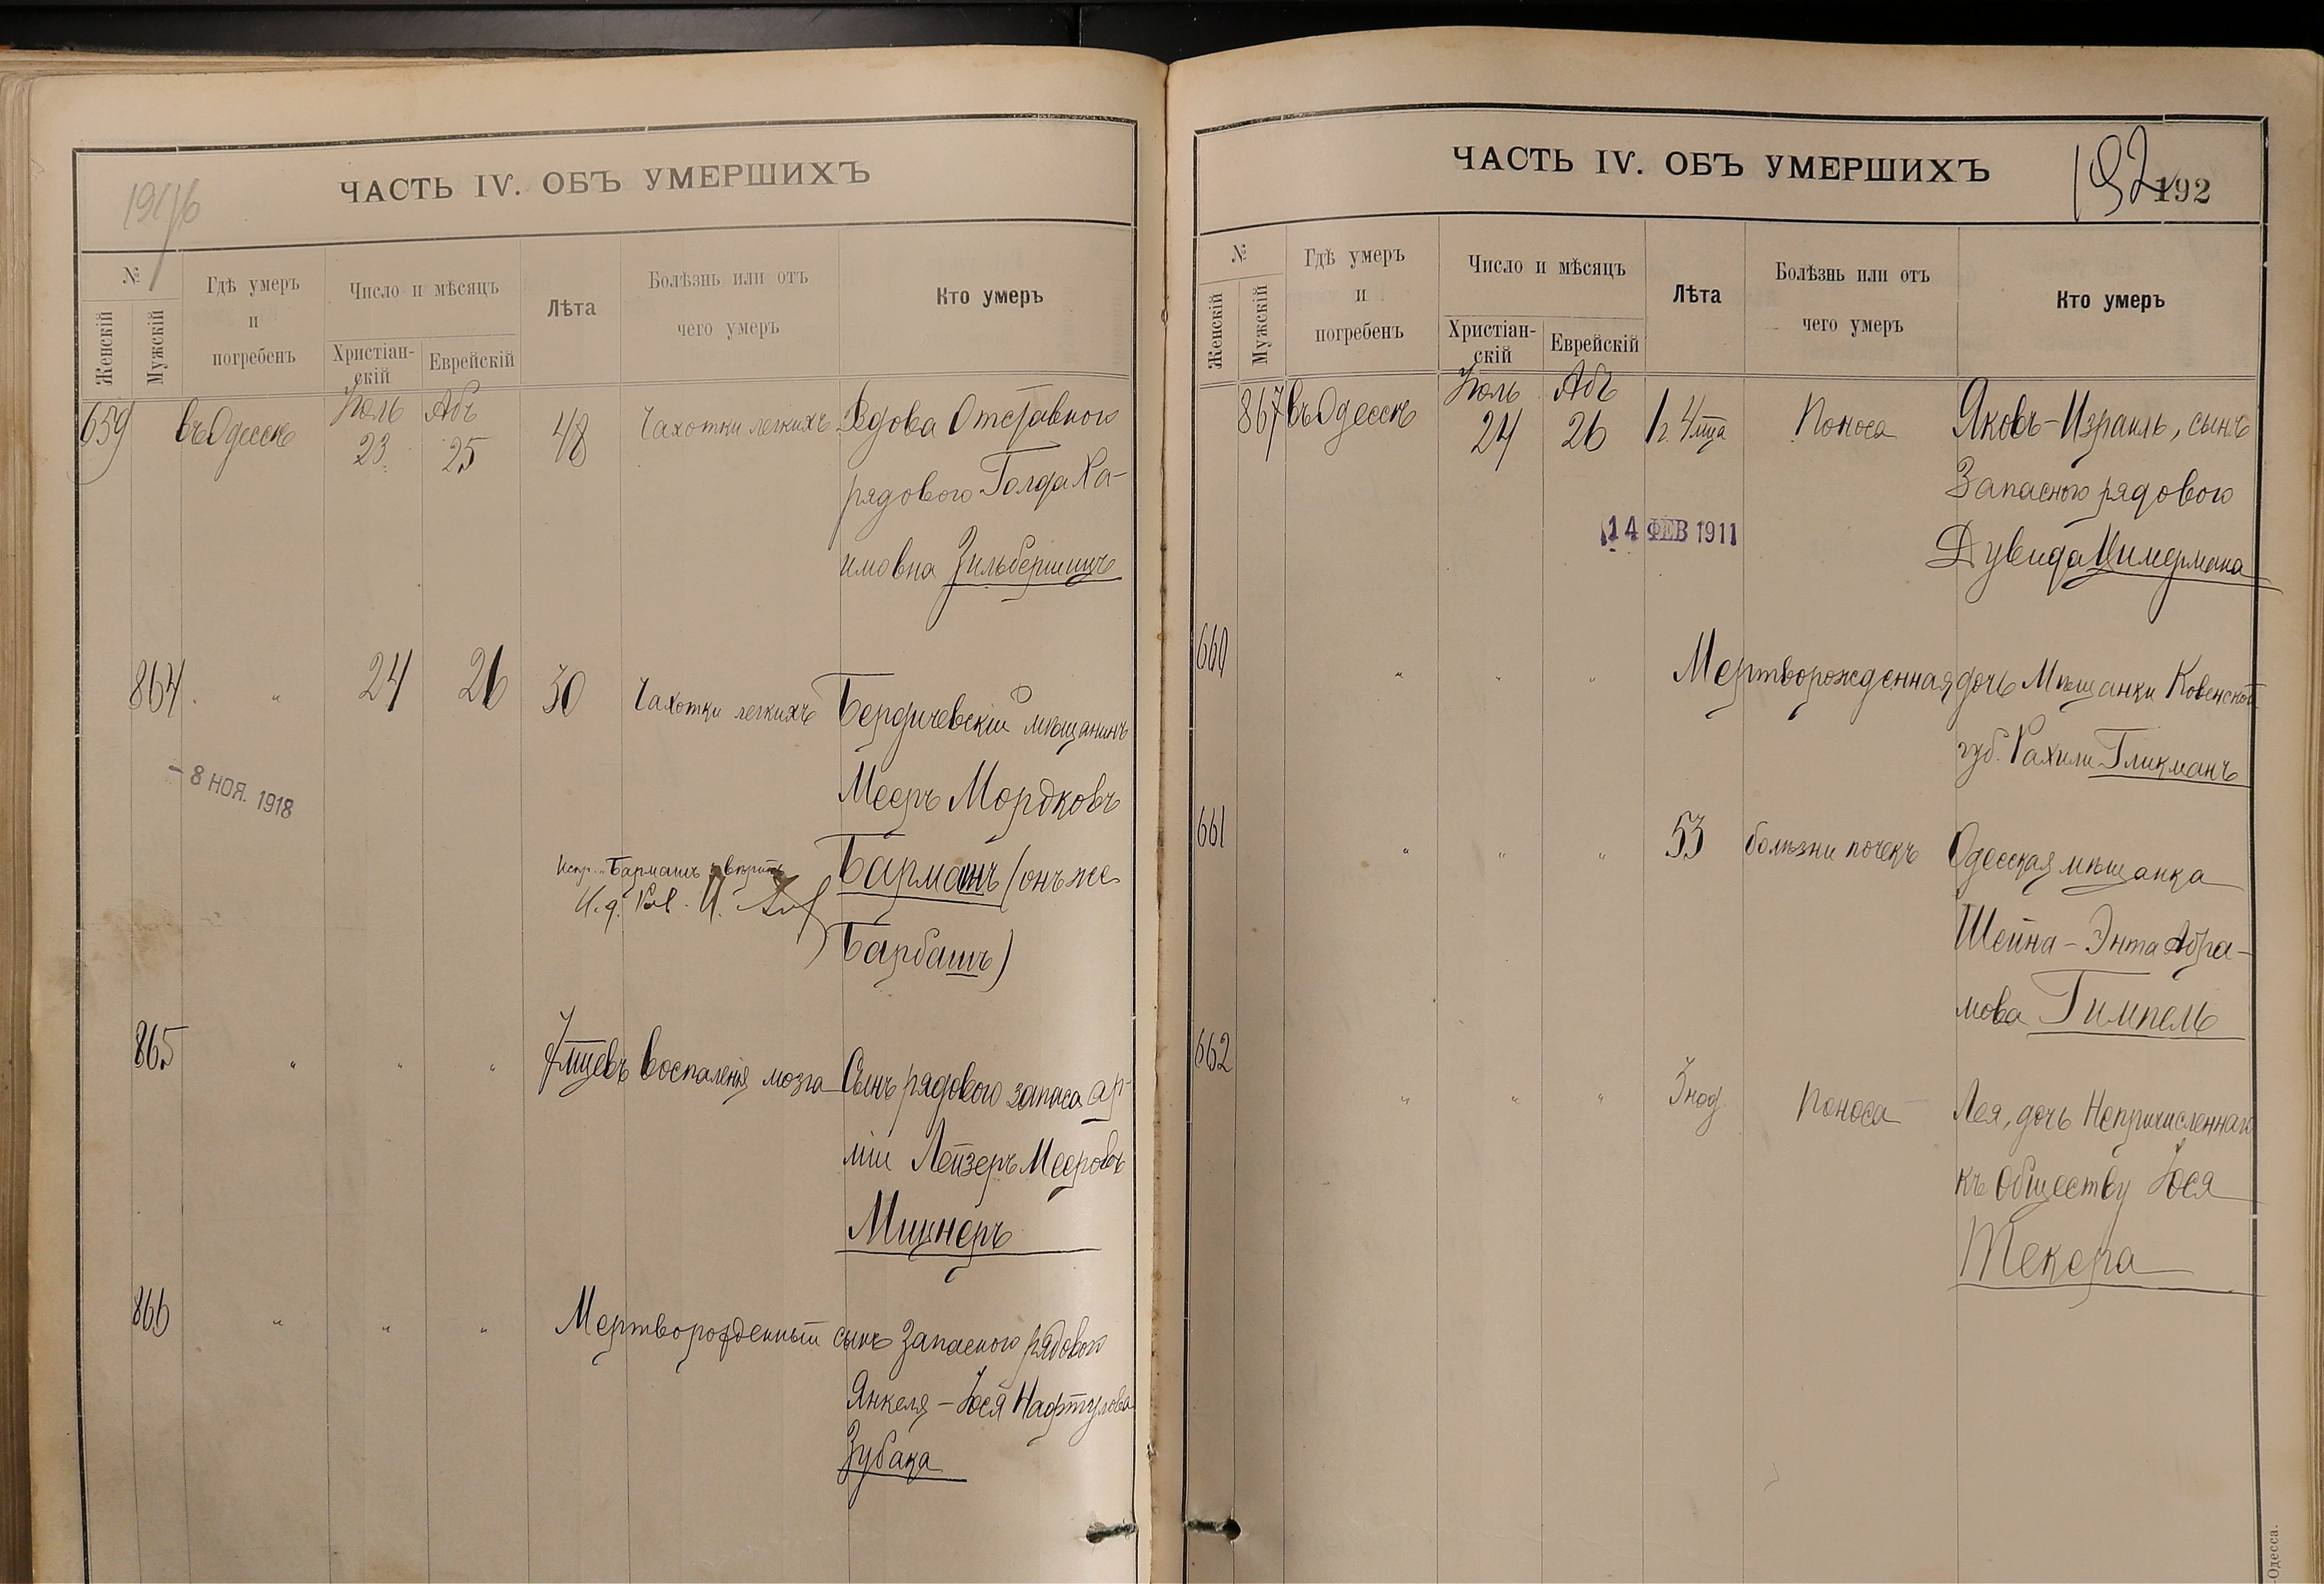 ЧАСТЬ IV. ОБЪ УМЕРШИХЪ
№
Женскій
Мужскій
Гдѣ умеръ
и
погребенъ
Число и мѣсяцъ
Христіан-
скій
Еврейскій
Лѣта
Болѣзнь или отъ
чего умеръ
Кто умеръ
Іюль Абъ
659 въ Одессѣ 23 25 48 Чахотки легкихъ Вдова Отставного
рядового Голда Ха-
имовна
864 " 24 26 30 Чахотки легкихъ Бердичевскій мѣщанинъ
- 8 НОЯ. 1918
Мееръ Мордковъ
Барманъ (онъ же
Испр. Барманъ вѣрить
И. д. Рав.
Барбашъ)
865 " " " 7 мцевъ Воспаленія мозга Сынъ рядового запаса ар-
міи Лейзеръ Мееровъ
866 " " " Мертворожденный сынъ Запасного рядового
Янкеля-Іося Нафтулова
Зубака
ЧАСТЬ IV. ОБЪ УМЕРШИХЪ
192
192
№
Женскій
Мужскій
Гдѣ умеръ
и
погребенъ
Число и мѣсяцъ
Христіан-
скій
Еврейскій
Лѣта
Болѣзнь или отъ
чего умеръ
Кто умеръ
Іюль Абъ
867 въ Одессѣ 24 26 1 г. 4 мца Поноса Яковъ-Израиль, сынъ
Запасного рядового
14 ФЕВ 1911
Дувида Цимермана
660 " " " Мертворожденная дочь Мѣщанки Ковенской
губ. Рахили Гликманъ
661 " " " 53 болѣзни почекъ Одесская мѣщанка
Шейна-Энта Абра-
мова Гимпель
662 " " " Поноса Лея, дочь Непричисленнаго
къ обществу Іося
Текера
-Одесса.